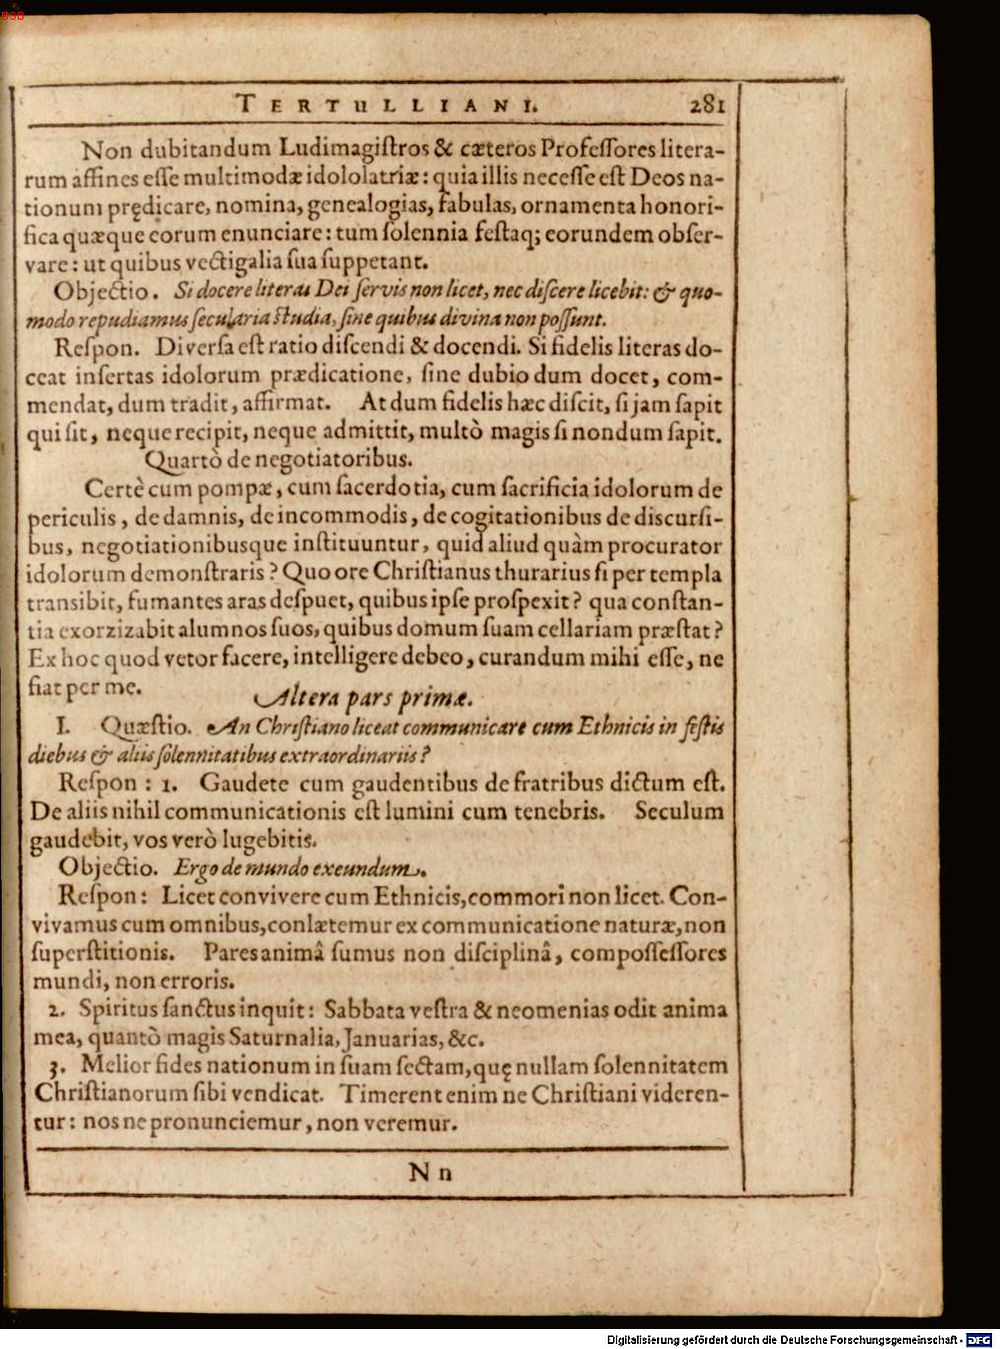 BSB
TERTULLIANI. 281
Non dubitandum Ludimagiſtros & cæteros Profeſſores litera-
rum affines eſſe multimodæ idololatriæ: quia illis neceſſe eſt Deos na-
tionum prędicare, nomina, genealogias, fabulas, ornamenta honori-
fica quæque eorum enunciare: tum ſolennia feſtaq; eorundem obſer-
vare: ut quibus vectigalia ſua ſuppetant.
Objectio. Si docere literas Dei ſervis non licet, nec diſcere licebit: & quo-
modo repudiamus ſecularia ſtudia, ſine quibus divina non poſſunt.
Reſpon. Diverſa eſt ratio diſcendi & docendi. Si fidelis literas do-
ceat inſertas idolorum prædicatione, ſine dubio dum docet, com-
mendat, dum tradit, affirmat. At dum fidelis hæc diſcit, ſi jam ſapit
qui ſit, neque recipit, neque admittit, multò magis ſi nondum ſapit.
Quartò de negotiatoribus.
Certè cum pompæ, cum ſacerdotia, cum ſacrificia idolorum de
periculis, de damnis, de incommodis, de cogitationibus de discurſi-
bus, negotiationibusque inſtituuntur, quid aliud quàm procurator
idolorum demonſtraris? Quo ore Chriſtianus thurarius ſi per templa
transibit, fumantes aras deſpuet, quibus ipſe proſpexit? qua conſtan-
tia exorzizabit alumnos ſuos, quibus domum ſuam cellariam præſtat?
Ex hoc quod vetor facere, intelligere debeo, curandum mihi eſſe, ne
fiat per me.
Altera pars primæ.
I. Quæſtio. An Chriſtiano liceat communicare cum Ethnicis in feſtis
diebus & aliis ſolennitatibus extraordinariis?
Reſpon: 1. Gaudete cum gaudentibus de fratribus dictum eſt.
De aliis nihil communicationis eſt lumini cum tenebris. Seculum
gaudebit, vos verò lugebitis.
Objectio. Ergo de mundo exeundum.
Reſpon: Licet convivere cum Ethnicis, commori non licet. Con-
vivamus cum omnibus, conlætemur ex communicatione naturæ, non
ſuperſtitionis. Pares animâ ſumus non diſciplinâ, compoſſeſſores
mundi, non erroris.
2. Spiritus ſanctus inquit: Sabbata veſtra & neomenias odit anima
mea, quantò magis Saturnalia, Januarias, &c.
3. Melior fides nationum in ſuam ſectam, quę nullam ſolennitatem
Chriſtianorum ſibi vendicat. Timerent enim ne Chriſtiani videren-
tur: nos ne pronunciemur, non veremur.
N n
Digitalisierung gefördert durch die Deutsche Forschungsgemeinschaft - DFG